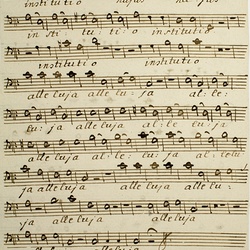 institutio hujus hujus
in sti tu ti o institutio
institutio institutio
alleluja alleluja al le:
lu: ja alleluja alleluja
alleluja al: le: lu: ja al: lelu
ja alleluja alleluja alle lu:
ja alleluja alleluja
alleluja